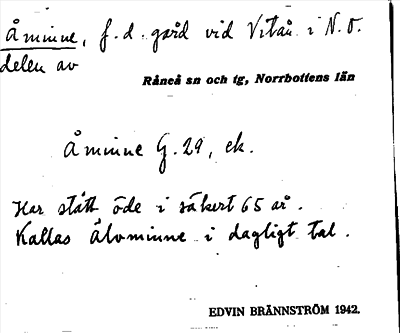 Åminne, f.d. gård vid Vitån i N.O.
delen av
Råneå sn och tg, Norrbottens län
Åminne G. 29, ek.
Har stått öde i säkert 65 år.
Kallas Älvminne i dagligt tal.
EDVIN BRÄNNSTRÖM 1942.